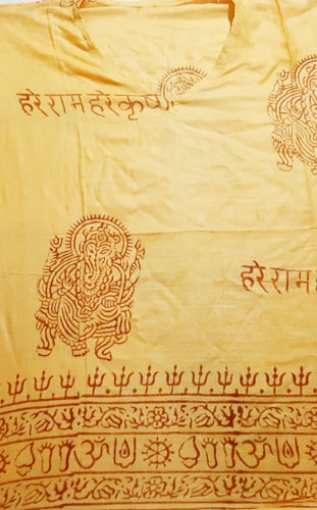 हरे राम हरे कृष्ण
हरे राम
ॐ ॐ